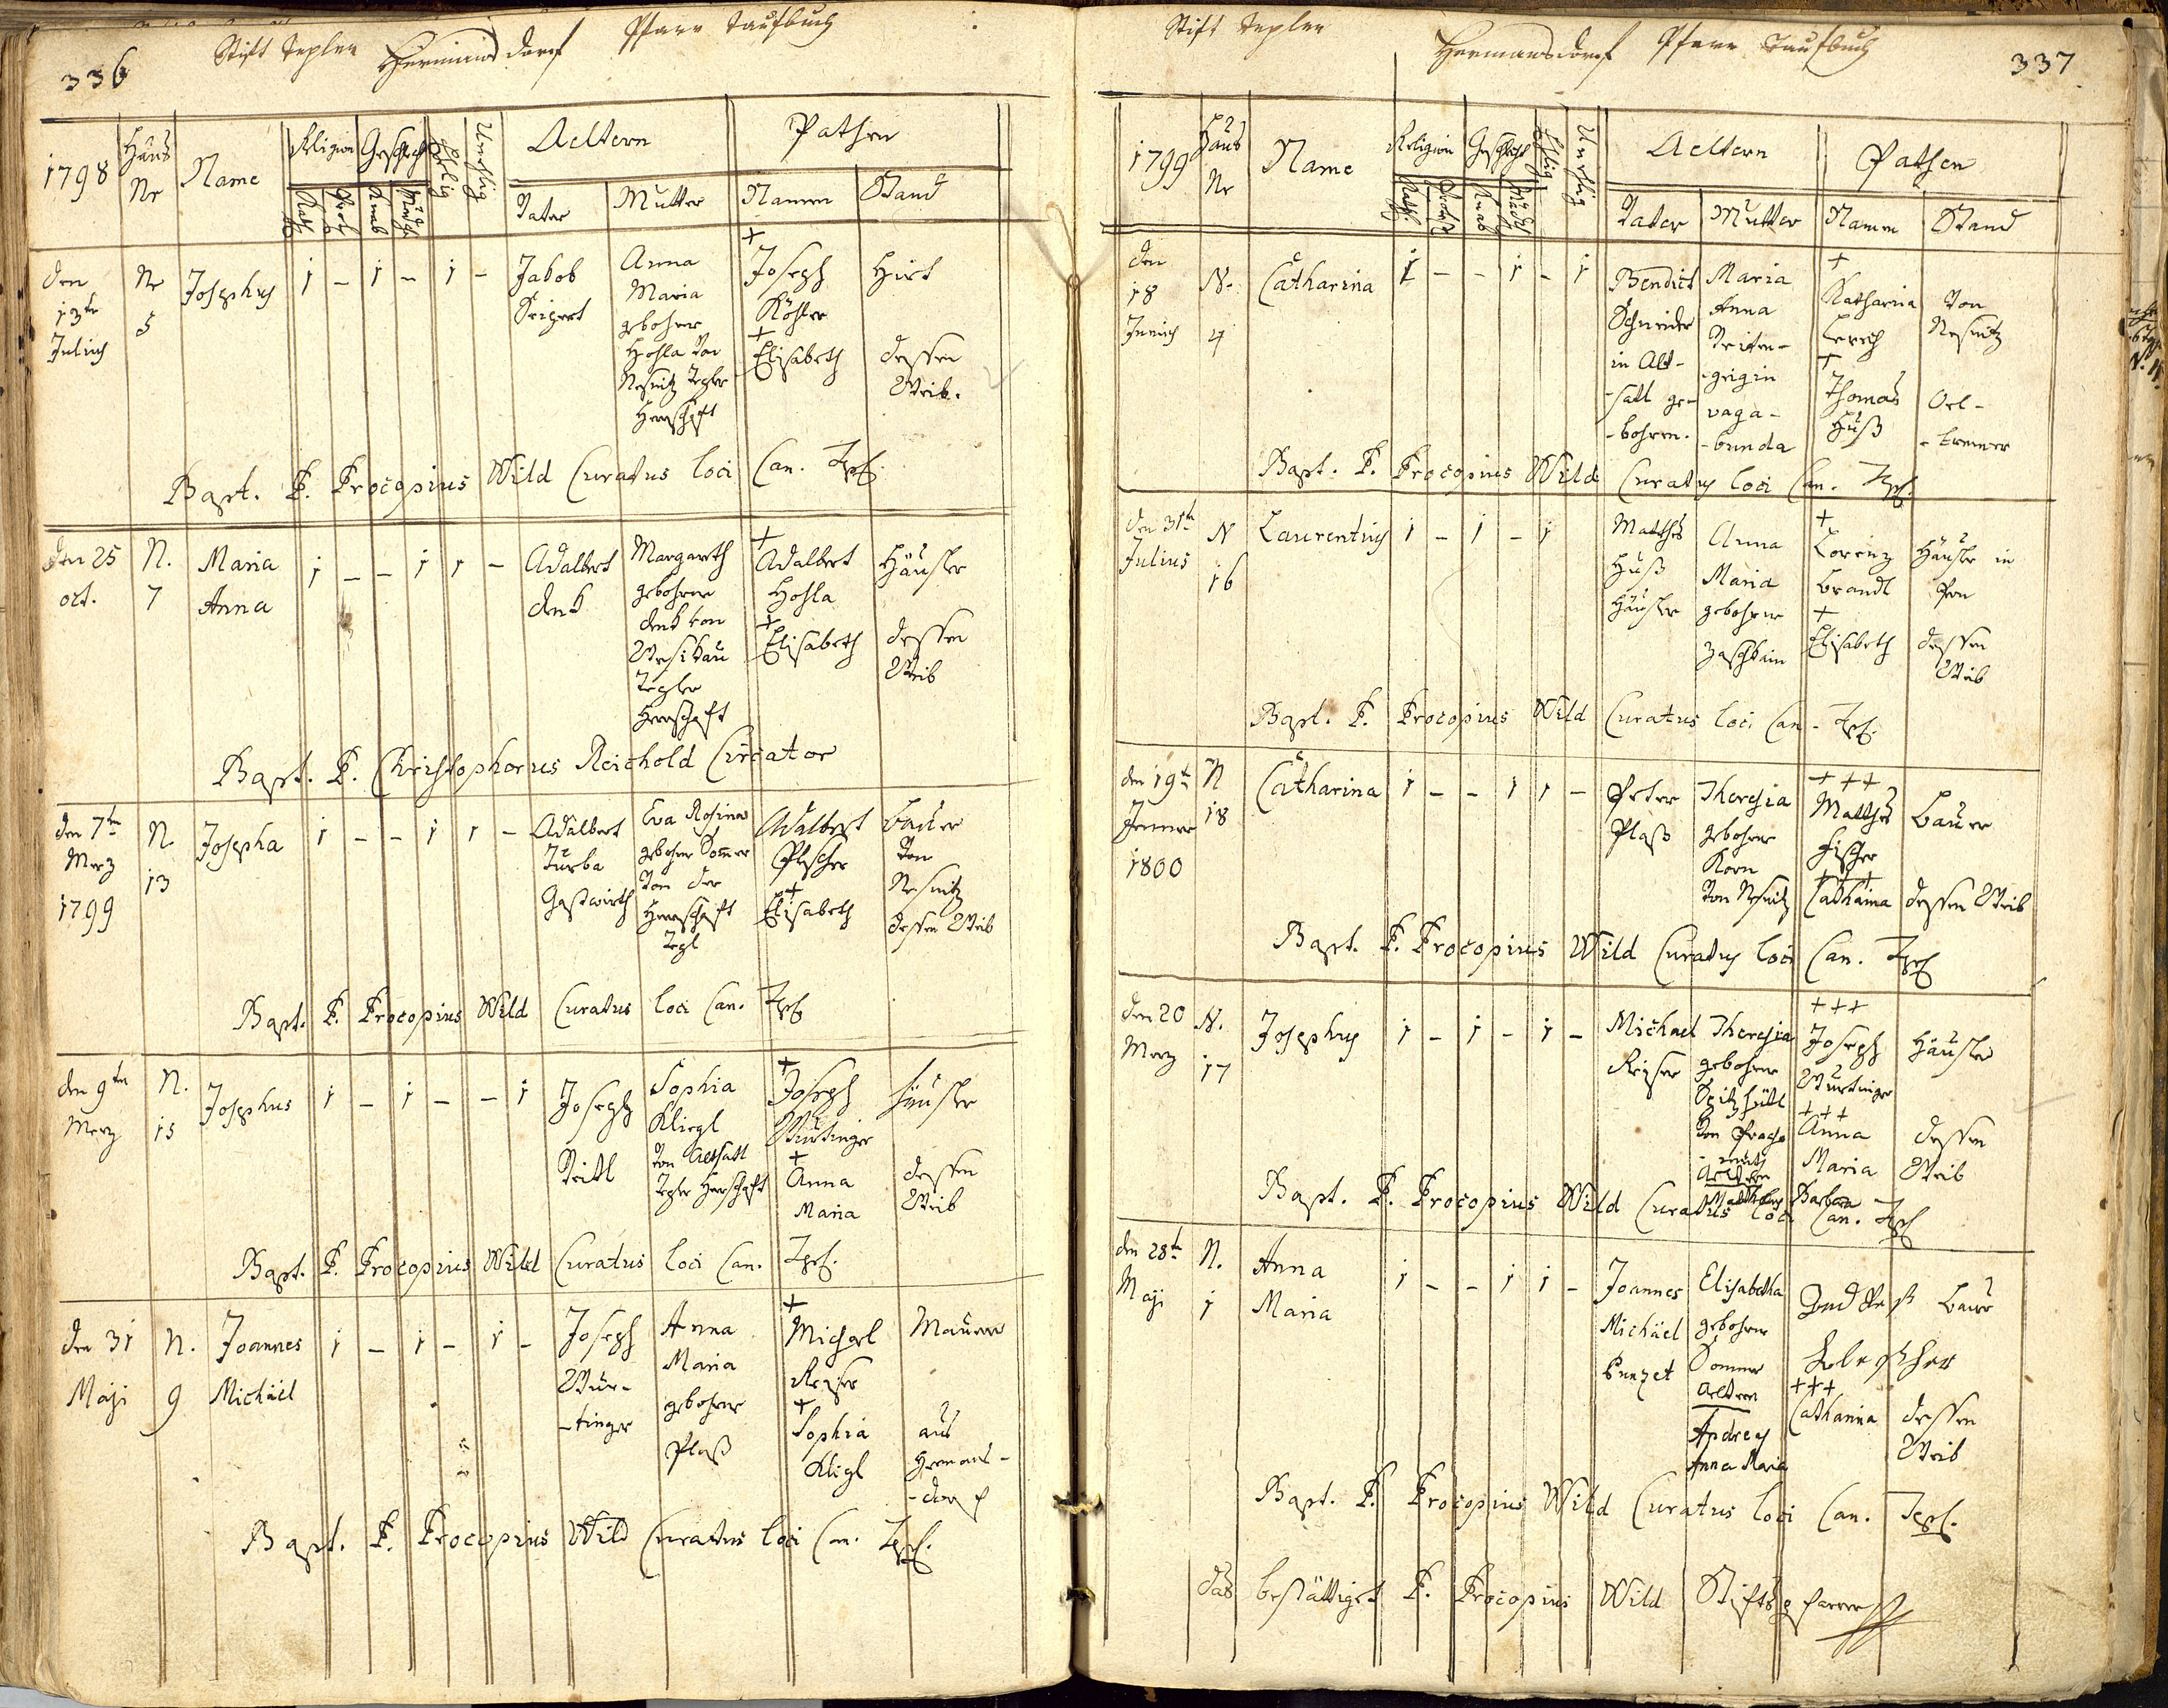 336
Stift Tepler Hermansdorf Pfarr Taufbuch
1798 Haus Nr Name Religion Geschlecht Ehelig Unehlig Aeltern Pathen
Kath. Knab Vater Mutter Namen Stand
den 13ten Julius
Nr 5
Josephus
1 - 1 - 1 -
Jakob
Anna
Maria
gebohrne
Hohla von
Nesnitz Tepler
Herrschaft
+
Joseph
Köhler
+
Elisabeth
Hirt
dessen
Weib.
Bapt. P. Procopius Wild Curatus loci Can. Tepl.
den 25
oct.
N.
7
Maria
Anna
1 - - 1 1 -
Adalbert
Denk
Margareth
gebohrne
Denk von
Tepler
Herrschaft
+
Adalbert
Hohla
+
Elisabeth
Häusler
dessen
Weib
Bapt. P. Christophorus Reichold Circator
den 7ten
Merz
1799
N.
13
Josepha
1 - - 1 1 -
Adalbert
Turba
Gastwirth
Eva Rosina
gebohrne Sommer
von der
Herrschaft
Tepl
Adalbert
Plescher
+
Elisabeth
Bauer
von
Nesnitz
dessen Weib
Bapt. P. Procopius Wild Curatus loci Can. Tepl
den 9ten
Merz
N.
15
Josephus
1 - 1 - - 1
Joseph
Veitl
Sophia
Kliegl
von Altsatl
Tepler Herschaft
+
Joseph
Würtinger
+
Anna
Maria
Häusler
dessen
Weib
Bapt. P. Procopius Wild Curatus loci Can. Tepl.
den 31
Maji
N.
9
Joannes
Michäel
1 - 1 - 1 -
Joseph
Wür-
-tinger
Anna
Maria
gebohrne
Plaß
+
Michael
Reiser
+
Sophia
Kligl
Maurer
aus
Hermans-
-dorf
Bapt. P. Procopius Wild Curatus loci Can. Tepl.
Stift Tepler Hermansdorf Pfarr Taufbuch
337
1799 Haus Nr Name Religion Geschlecht Ehlig Unehlig Aeltern Pathen
Kath. Knab Vater Mutter Namen Stand
den
18
Junius
N.
4
Catharina
1 - - 1 - 1
Bendict
Schneider
in Alt-
-satl ge-
-bohren.
Maria
Anna
-geigin
vaga-
-bunda
+
Katharina
Lerch
+
Thomas
Huß
von
Nesnitz
Bapt. P. Procopius Wild Curatus loci Can. Tepl.
den 31ten
Julius
N
16
Laurentius
1 - 1 - 1
Matthes
Huß
Häusler
Anna
Maria
gebohrne
+
Lorenz
Brandl
+
Elisabeth
Häusler in
dessen
Weib
Bapt. P. Procopius Wild Curatus loci Can. Tepl.
den 19ten
Jenner
1800
N
18
Catharina
1 - - 1 1 -
Peter
Plaß
Theresia
gebohrne
Korn
von Nesnitz
+++
Matthes
Fischer
+++
Catharina
Bauer
dessen Weib
Bapt. P. Procopius Wild Curatus loci Can. Tepl
den 20
Merz
N.
17
Josephus
1 - 1 - 1 -
Michael
Reiser
Theresia
gebohrne
Spitzhütl
Aeltern
Mathes Barbara
+++
Joseph
Würtinger
+++
Anna
Maria
Häusler
dessen
Weib
Bapt. P. Procopius Wild Curatus loci Can. Tepl
den 28ten
Maji
N.
1
Anna
Maria
1 - - 1 1 -
Joannes
Michäel
Punzet
Elisabetha
gebohrne
Sommer
Aeltern
Andreas
Anna Maria
+++
Catharina
Bauer
dessen
Weib
Bapt. P. Procopius Wild Curatus loci Can. Tepl.
das bestättiget P. Procopius Wild Stiftspfarrer